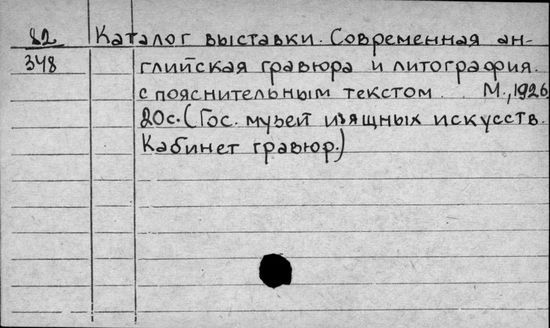 82 Каталог выставки. Современная ан-
348 глийская гравюра и литография.
с пояснительным текстом. М., 1926
20с. (Гос. музей изящных искусств.
Кабинет гравюр.)